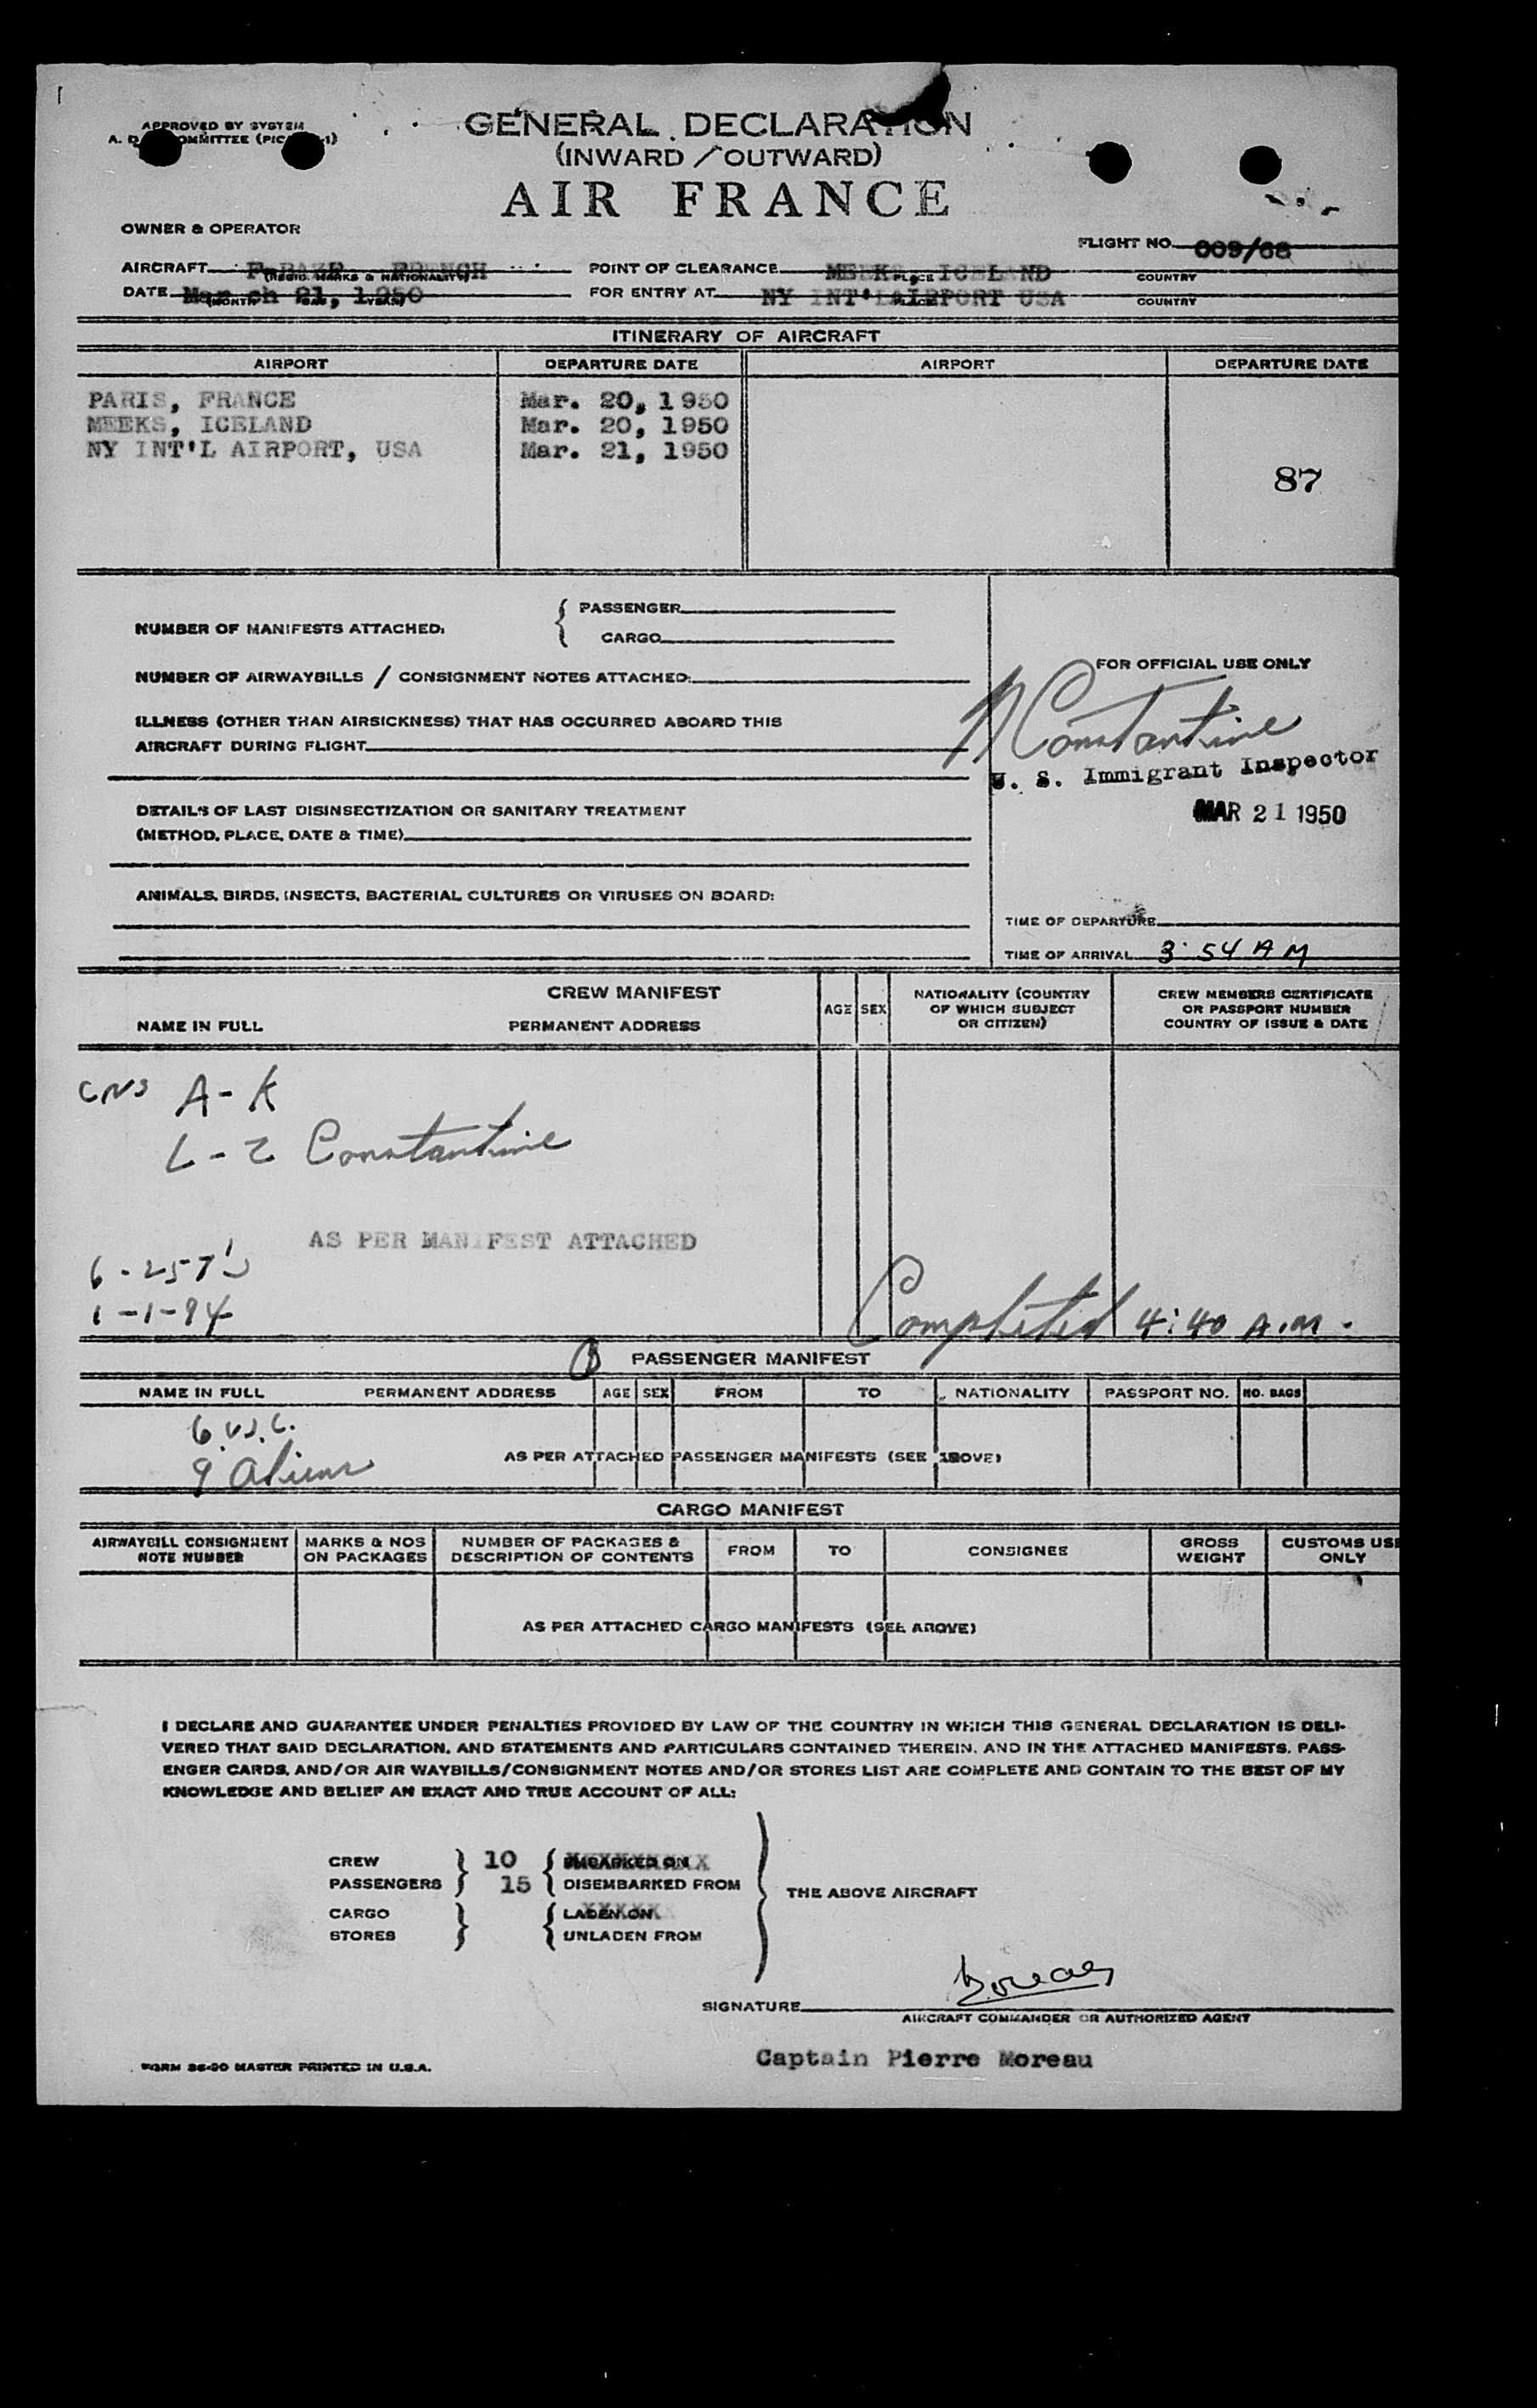 APPROVED BY SYSTEM
GENERAL DECLARATION
(INWARD / OUTWARD)
AIR FRANCE
OWNER & OPERATOR
FLIGHT NO. 009/68
AIRCRAFT FRENCH POINT OF CLEARANCE MEEKS, ICELAND
(REGIS. MARKS & NATIONALITY) PLACE COUNTRY
DATE March 21, 1950 FOR ENTRY AT NY INT'L AIRPORT USA
(MONTH DAY YEAR) PLACE COUNTRY
ITINERARY OF AIRCRAFT
AIRPORT DEPARTURE DATE AIRPORT DEPARTURE DATE
PARIS, FRANCE Mar. 20, 1950
MEEKS, ICELAND Mar. 20, 1950
NY INT'L AIRPORT, USA Mar. 21, 1950
87
NUMBER OF MANIFESTS ATTACHED: { PASSENGER
CARGO
NUMBER OF AIRWAYBILLS / CONSIGNMENT NOTES ATTACHED:
ILLNESS (OTHER THAN AIRSICKNESS) THAT HAS OCCURRED ABOARD THIS
AIRCRAFT DURING FLIGHT
DETAILS OF LAST DISINSECTIZATION OR SANITARY TREATMENT
(METHOD, PLACE, DATE & TIME)
ANIMALS, BIRDS, INSECTS, BACTERIAL CULTURES OR VIRUSES ON BOARD:
FOR OFFICIAL USE ONLY
Constantine
U. S. Immigrant Inspector
MAR 21 1950
TIME OF DEPARTURE
TIME OF ARRIVAL 3:54 AM
CREW MANIFEST
NAME IN FULL PERMANENT ADDRESS AGE SEX NATIONALITY (COUNTRY OF WHICH SUBJECT OR CITIZEN) CREW MEMBERS CERTIFICATE OR PASSPORT NUMBER COUNTRY OF ISSUE & DATE
A - K
L - Z Constantine
AS PER MANIFEST ATTACHED
6 - 257's
1 - 1-94
Completed 4:40 A.M.
PASSENGER MANIFEST
NAME IN FULL PERMANENT ADDRESS AGE SEX FROM TO NATIONALITY PASSPORT NO. NO. BAGS
9 Aliens
AS PER ATTACHED PASSENGER MANIFESTS (SEE ABOVE)
CARGO MANIFEST
AIRWAYBILL CONSIGNMENT NOTE NUMBER MARKS & NOS ON PACKAGES NUMBER OF PACKAGES & DESCRIPTION OF CONTENTS FROM TO CONSIGNEE GROSS WEIGHT CUSTOMS USE ONLY
AS PER ATTACHED CARGO MANIFESTS (SEE ABOVE)
I DECLARE AND GUARANTEE UNDER PENALTIES PROVIDED BY LAW OF THE COUNTRY IN WHICH THIS GENERAL DECLARATION IS DELI-
VERED THAT SAID DECLARATION, AND STATEMENTS AND PARTICULARS CONTAINED THEREIN, AND IN THE ATTACHED MANIFESTS, PASS-
ENGER CARDS, AND/OR AIR WAYBILLS/CONSIGNMENT NOTES AND/OR STORES LIST ARE COMPLETE AND CONTAIN TO THE BEST OF MY
KNOWLEDGE AND BELIEF AN EXACT AND TRUE ACCOUNT OF ALL:
CREW } 10 { EMBARKED ON
PASSENGERS } 15 { DISEMBARKED FROM
THE ABOVE AIRCRAFT
CARGO } { LADEN ON
STORES } { UNLADEN FROM
SIGNATURE Moreau
AIRCRAFT COMMANDER OR AUTHORIZED AGENT
Captain Pierre Moreau
FORM 36-90 MASTER PRINTED IN U.S.A.